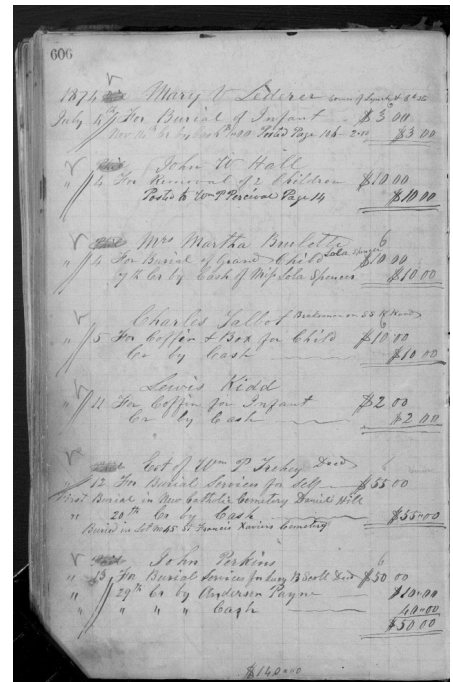 606
1874 Mary V Lederer corner of Lynch & 8th sts
July 4th For Burial of Infant $3 00
Nov 14th Cr by Cash Posted Page 126 $3 00
John W Hall
" 4 For Removal of 2 Children $10 00
Posted to Wm P Percival Page 14 $10 00
Mrs Martha Burlette 6
" 4 For Burial of Grand Child Lola Spencer $10 00
17th Cr by Cash of Miss Lola Spencer $10.00
Charles Talbot Brakesman on SS R Road 6
" 5 For Coffin & Box for Child $10 00
Cr by Cash $10 00
Lewis Kidd
" 11 For Coffin for Infant $2 00
Cr by Cash $2 00
Est of Wm P Trehey Decd 6
" 12 For Burial Services for self $55 00
First Burial in New Catholic Cemetery Daniel Hill
" 20th Cr by Cash $55=00
Buried in Lot No 45 St Francis Xaviers Cemetery
John Perkins 6
" 13 For Burial Services for Lucy B Scott Decd $50 00
" 29th Cr by Anderson Payne $10=00
" " " " Cash 40=00
$50.00
$140=00